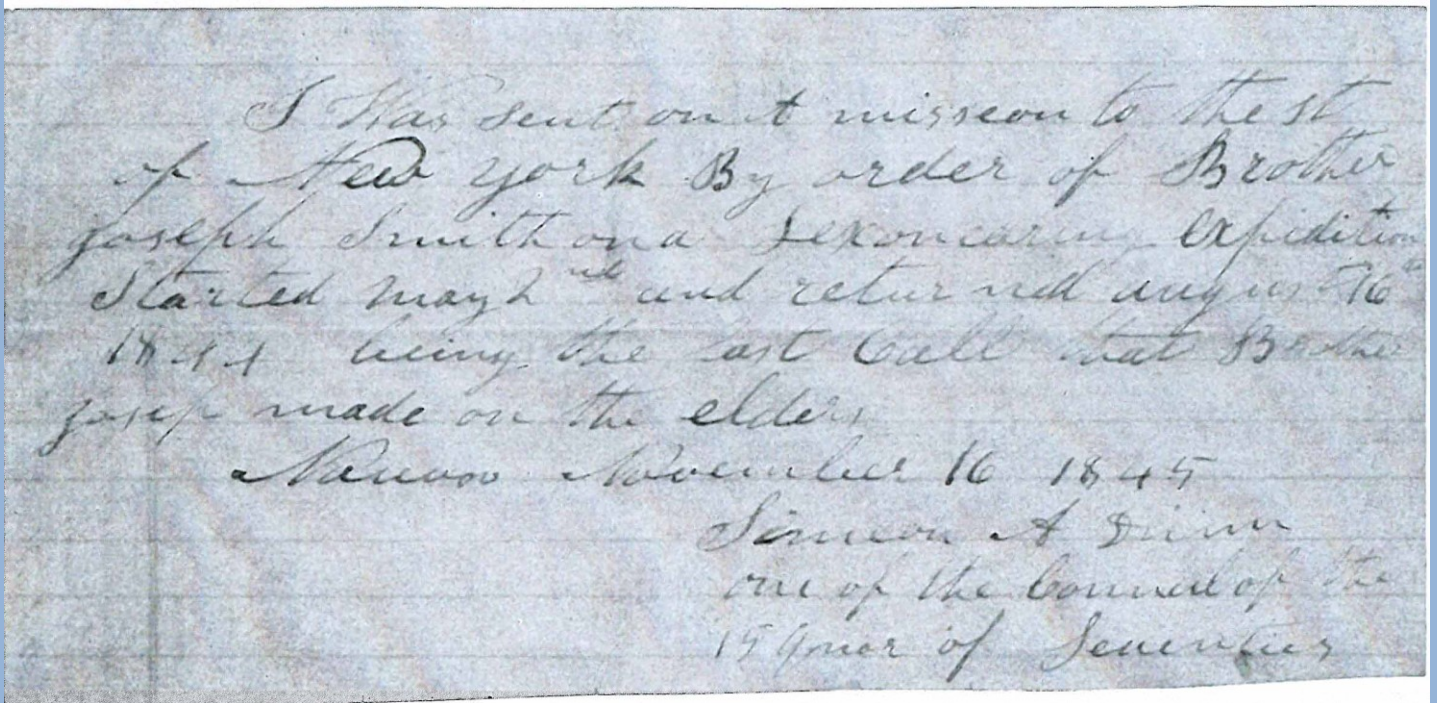 I Was sent on A misseon to the st
of New york By order of Brother
Joseph Smith on a expedition
Started may 2nd and returned 16
1844 being the last Call that Brother
Josep made on the elders
Nauvoo November 16 1845
Simeon A Dunn
one of the Counsel of the
15 of Seventies